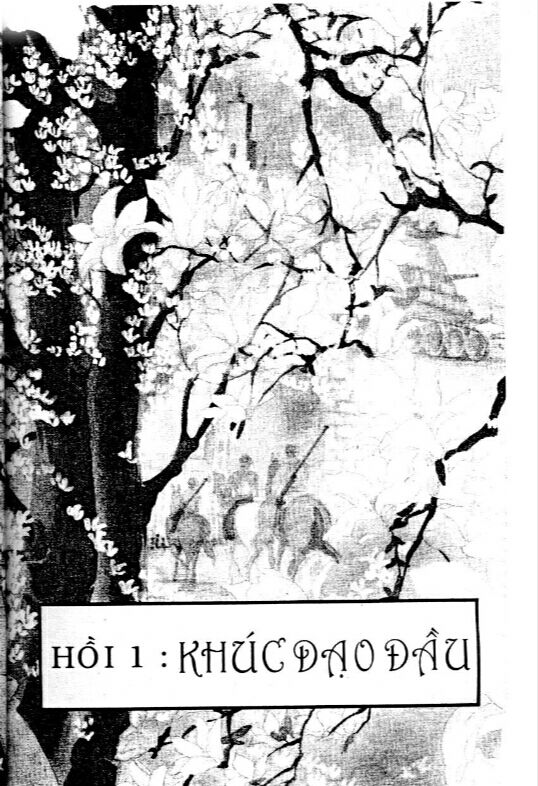 HỒI 1 : KHÚC DẠO ĐẦU